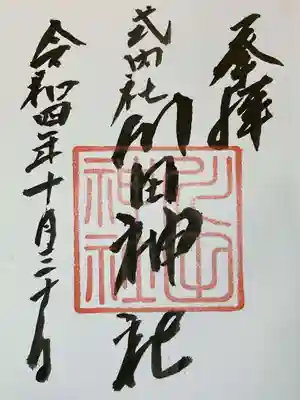 奉拝
式内社
川田神社
令和四年十月二十日